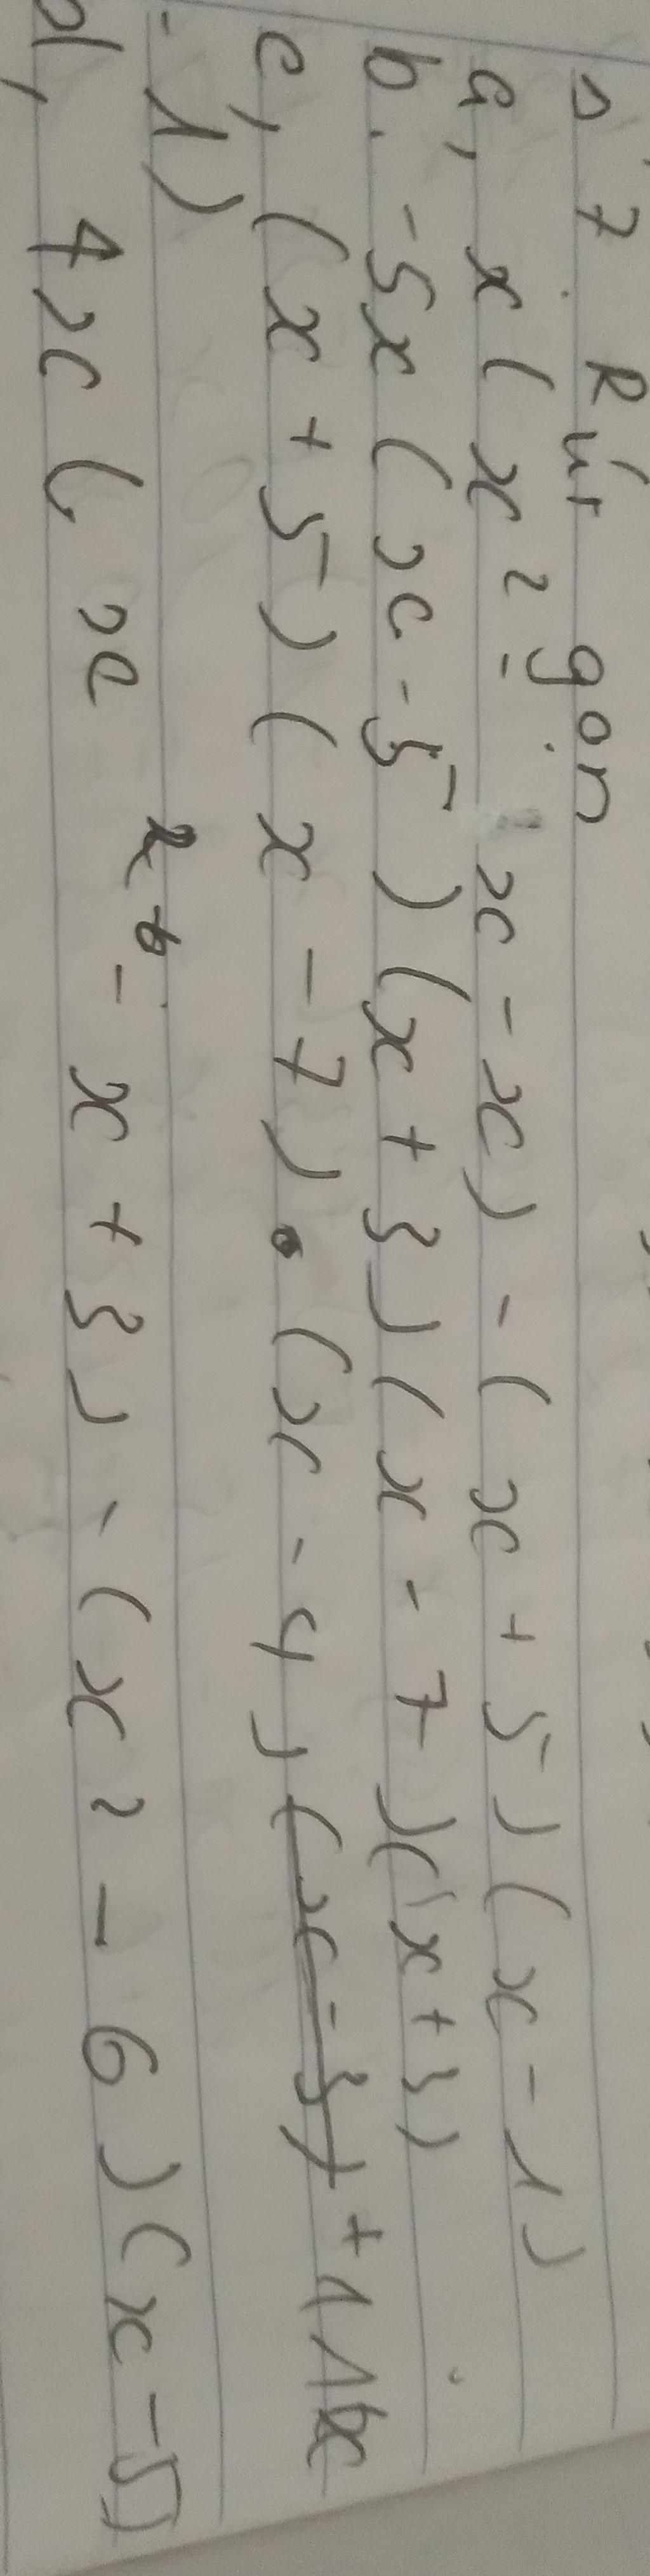 7. Rút gọn
a, x(x² - x - x) - (x + 5)(x - 1)
b. -5x(x - 5)(x + 3)(x - 7)(x + 3)
c, (x + 5)(x - 7).(x - 4) + 11x
- 1)
d, 4x(x - x + 3) - (x² - 6)(x - 5)